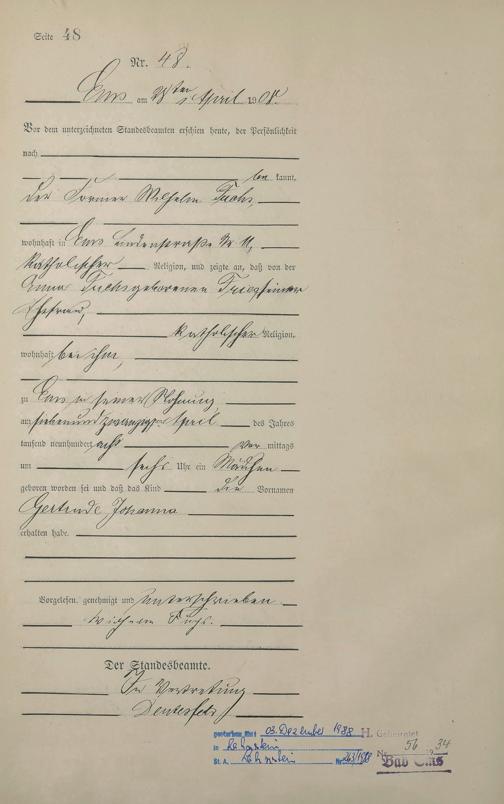 Seite 48
Nr. 48.
Ems am 28ten April 1908.
Vor dem unterzeichneten Standesbeamten erschien heute, der Persönlichkeit
nach
be kannt,
der Former Wilhelm Fuchs
wohnhaft in Ems Lindenstraße Nr 11,
katholischer Religion, und zeigte an, daß von der
Anna Fuchs geborenen seiner
Ehefrau,
katholischer Religion,
wohnhaft bei ihm,
zu Ems in seiner Wohnung
am siebenundzwanzigsten April des Jahres
tausend neunhundert acht Vor mittags
um sechs Uhr ein Mädchen
geboren worden sei und daß das Kind die Vornamen
Gertrude Johanna
erhalten habe.
Vorgelesen, genehmigt und unterschrieben
Wilhelm Fuchs.
Der Standesbeamte.
In Vertretung
gestorben am 03. Dezember 1988
in Lahnstein
St. A. Lahnstein Nr. 263/1988
H. Geheiratet
Nr. 56 1934
Bad Ems